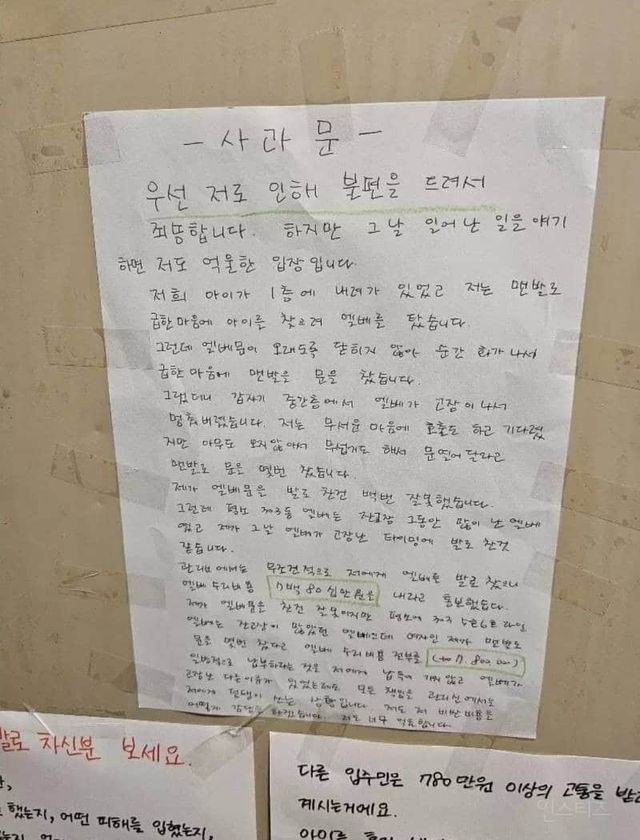 - 사 과 문 -
우선 저로 인해 불편을 드려서
죄송합니다. 하지만 그날 일어난 일을 얘기
하면 저도 억울한 입장입니다.
저희 아이가 1층에 내려가 있었고 저는 맨발로
급한마음에 아이를 찾으려 엘베를 탔습니다.
그런데 엘베문이 오래도록 닫히지 않아 순간 화가나서
급한 마음에 맨발을 문을 찼습니다.
그랬더니 갑자기 중간층에서 엘베가 고장이나서
멈춰버렸습니다. 저는 무서운 마음에 호출도 하고 기다렸
지만 아무도 오지않아서 무섭기도 해서 문열어달라고
맨발로 문을 몇번 찼습니다.
제가 엘베문을 발로 찬건 백번 잘못했습니다.
그런데 평소 엘베는 잔고장 그동안 많이 난 엘베
였고 제가 그날 엘베가 고장난 타이밍에 발로 찬것
같습니다.
관리비에서는 무조건적으로 저에게 엘베를 발로 찼으니
엘베 수리비용 7백 80십만원을 내라고 통보했습니다.
제가 엘베문을 찬건 잘못이지만 평소에 라인
엘베는 잔고장이 많았던 엘베인데 여자인 제가 맨발로
문을 몇번 찼다고 엘베 수리비용 전부를 7,800,000)
일방적으로 납부하라는 것은 저에게 납득이 가지 않고 엘베가
고장난 다른이유가 있었는데도 모든 책임을 관리실에서는
저에게 쓰는 상황입니다. 저도 저 비싼비용을
어떻게 감당을 하겠습니다. 저도 너무 억울합니다.
발로 차신분 보세요.
했는지, 어떤 피해를 입혔는지,
다른 입주민은 780만원 이상의 고통을 받고
계시는거에요.
인스티즈